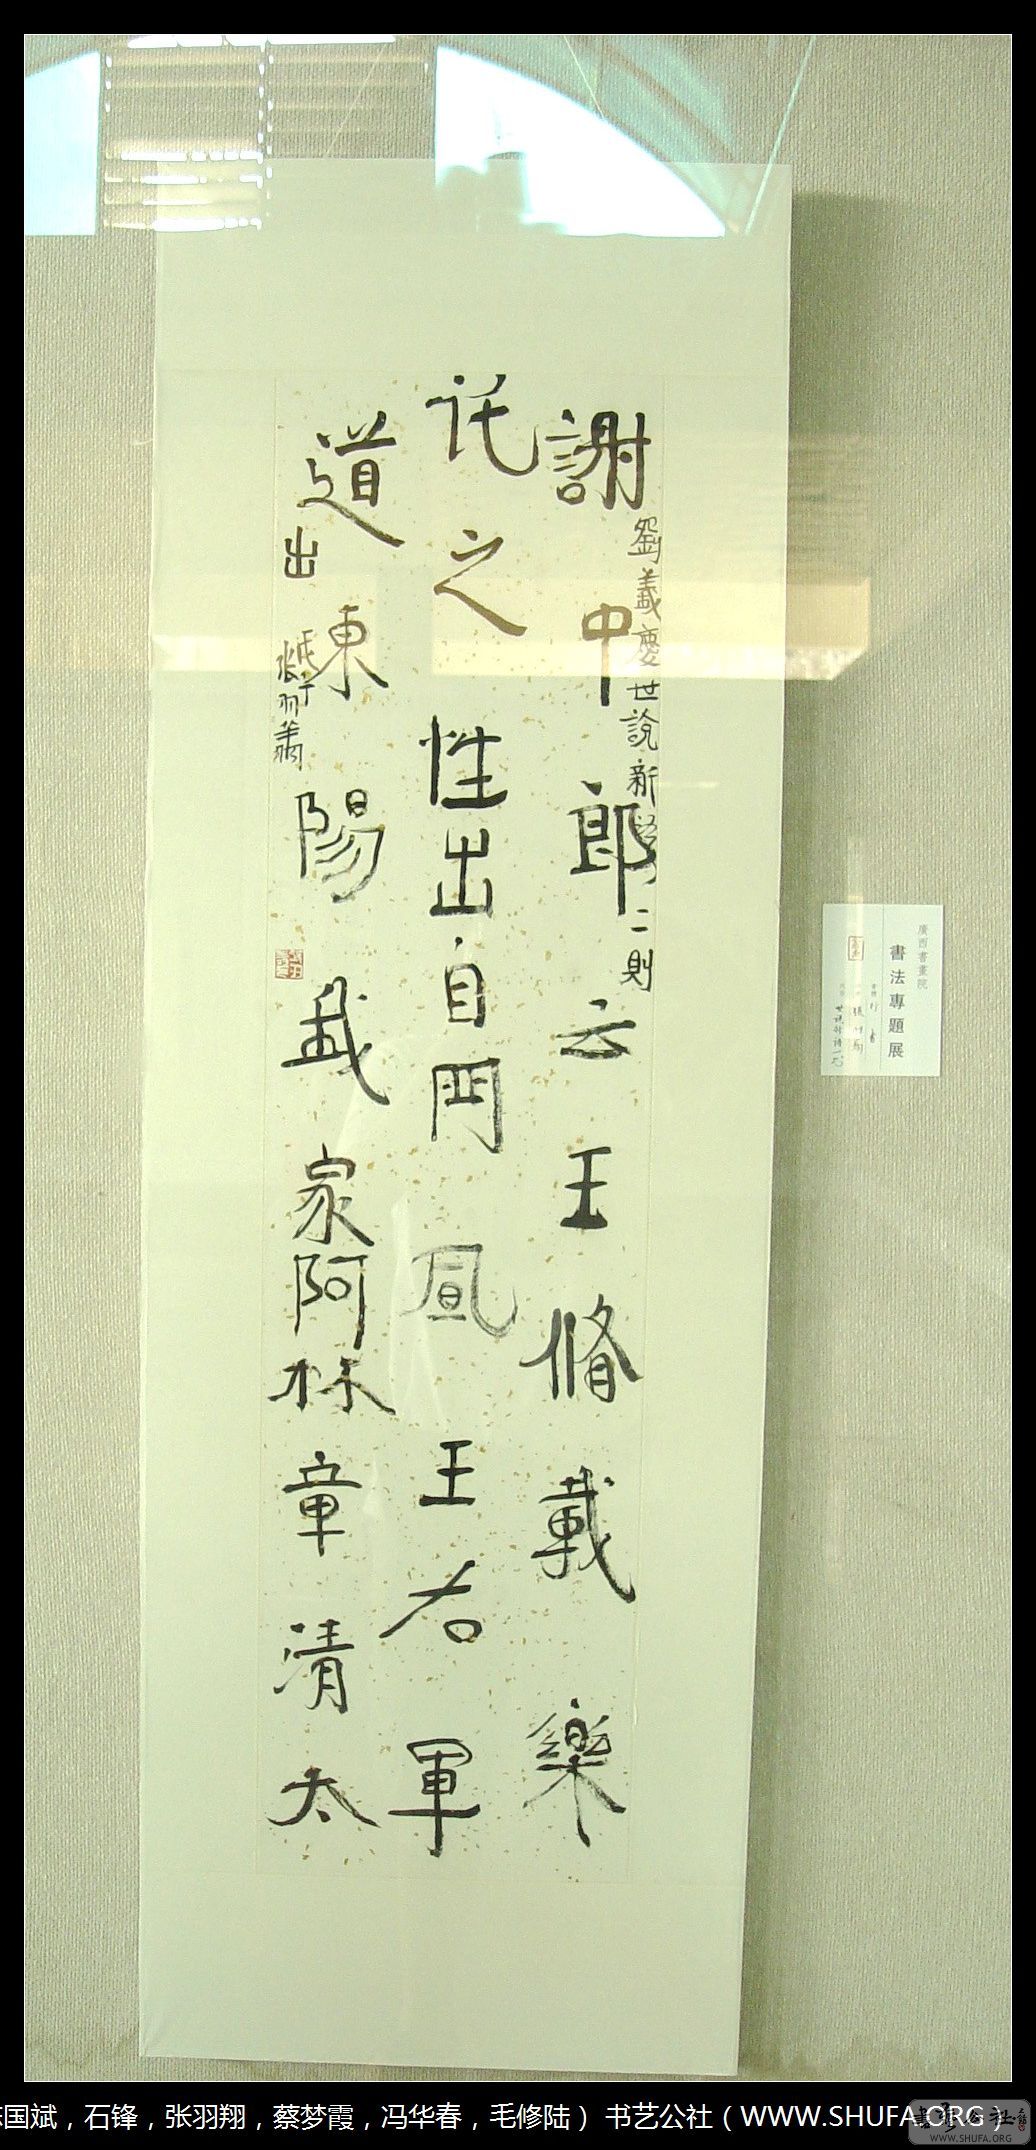 謝中郎云王脩載樂
託之性出自門風王右軍
道東陽我家阿林章清太
出
劉義慶世說新語二則
張羽翔
廣西書畫院
書法專題展
国斌，石锋，张羽翔，蔡梦霞，冯华春，毛修陆） 书艺公社（WWW.SHUFA.ORG）
书艺公社
WWW.SHUFA.ORG